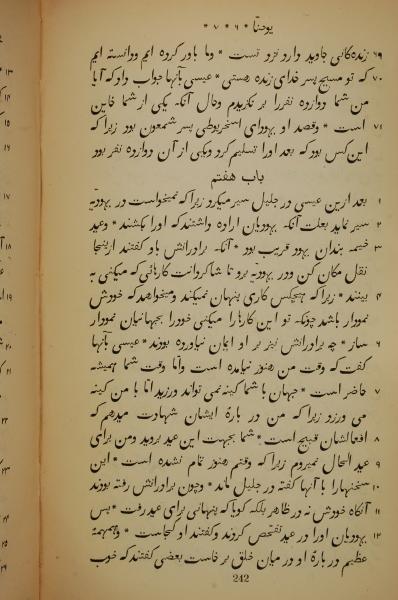 یوحنّا * ٦ * ٧ *
٦٩ زندهکانی جاوید دارد نزد تست * وما باور کرده ایم ودانسته ایم
٧٠ که تو مسیح پسر خدای زنده هستی * عیسی بآنها جواب داد که آیا
من شما دوازده نفررا بر نکزیدم وحال آنکه یکی از شما خاین
٧١ است * وقصد او یهودای اسخریوطی پسر شمعون بود زیرا که
این کس بود که بعد اورا تسلیم کرد ویکی از آن دوازده نفر بود
باب هفتم
١ بعد ازین عیسی در جلیل سیر میکرد زیرا که نمیخواست در یهودیه
٢ سیر نماید بعلت آنکه یهودیان اراده داشتند که اورا بکشند * وعید
٣ خیمه بندان یهود قریب بود * آنکه برادرانش باو کفتند ازینجا
نقل مکان کن ودر یهودیه برو تا شاکردانت کارهائی که میکنی به
٤ بینند * زیرا که هیچکس کاری پنهان نمیکند ومیخواهد که خودش
نمودار باشد چونکه تو این کارها را میکنی خودرا بجهانیان نمودار
٦ ساز * چه برادرانش نیز بر او ایمان نیاورده بودند * عیسی بآنها
کفت که وقت من هنوز نیامده است وامّا وقت شما همیشه
٧ حاضر است * جهان با شما کینه نمی تواند ورزید امّا با من کینه
می ورزد زیرا که من در بارۀ ایشان شهادت میدهم که
٨ افعالشان قبیح است * شما بجهت این عید بروید ومن برای
٩ عید الحال نمیروم زیرا که وقتم هنوز تمام نشده است * این
١٠ سخنهارا با آنها کفته در جلیل ماند * وچون برادرانش رفته بودند
١١ آنکاه خودش نه در ظاهر بلکه کویا که پنهانی برای عید رفت * پس
١٢ یهودیان اورا در عید تفحّص کردند وکفتند او کجاست * وهمهمۀ
عظیم در بارۀ او در میان خلق بر خاست بعضی کفتند که خوب
242